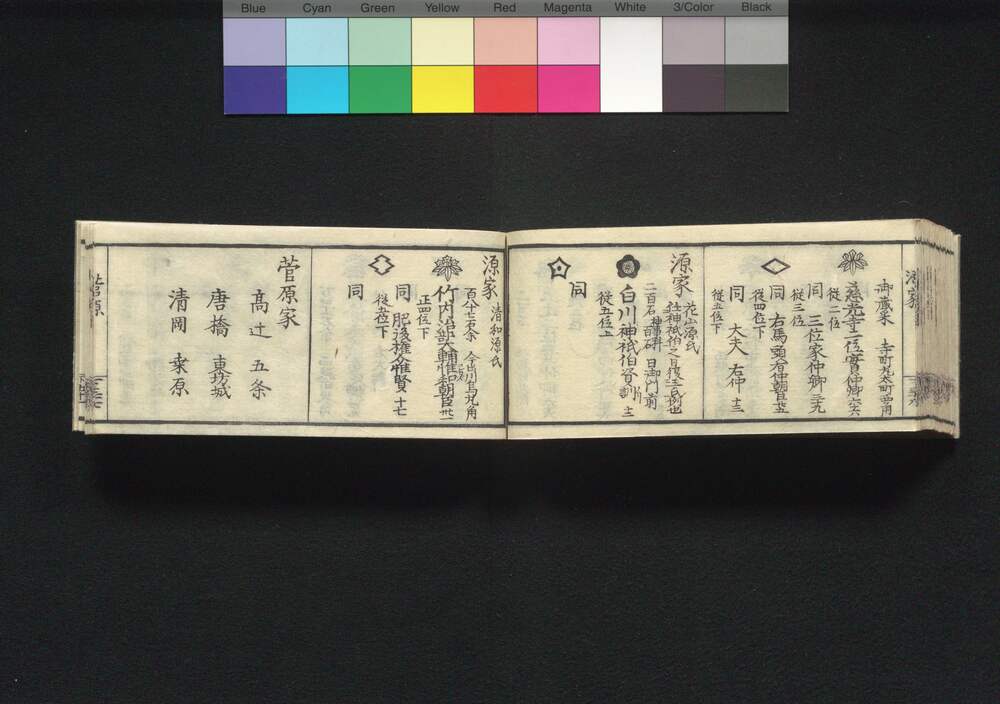 Blue Cyan Green Yellow Red Magenta White 3/Color Black
源家
御蔵米 寺町丸太町
慈光寺三位實仲卿
従二位
同 三位家仲卿 三九
従三位
同 右馬頭有仲朝臣
従四位下
同 大夫 右仲 十三
従五位下
源家 花山源氏
二百石
白川神祇伯資
従五位上
同
源家 清和源氏
今出川烏丸角
竹内治部大輔惟和朝臣
正四位下
同 肥後権介惟賢 十七
従五位下
同
菅原家
高辻 五条
唐橋 東坊城
清岡 桒原
菅原